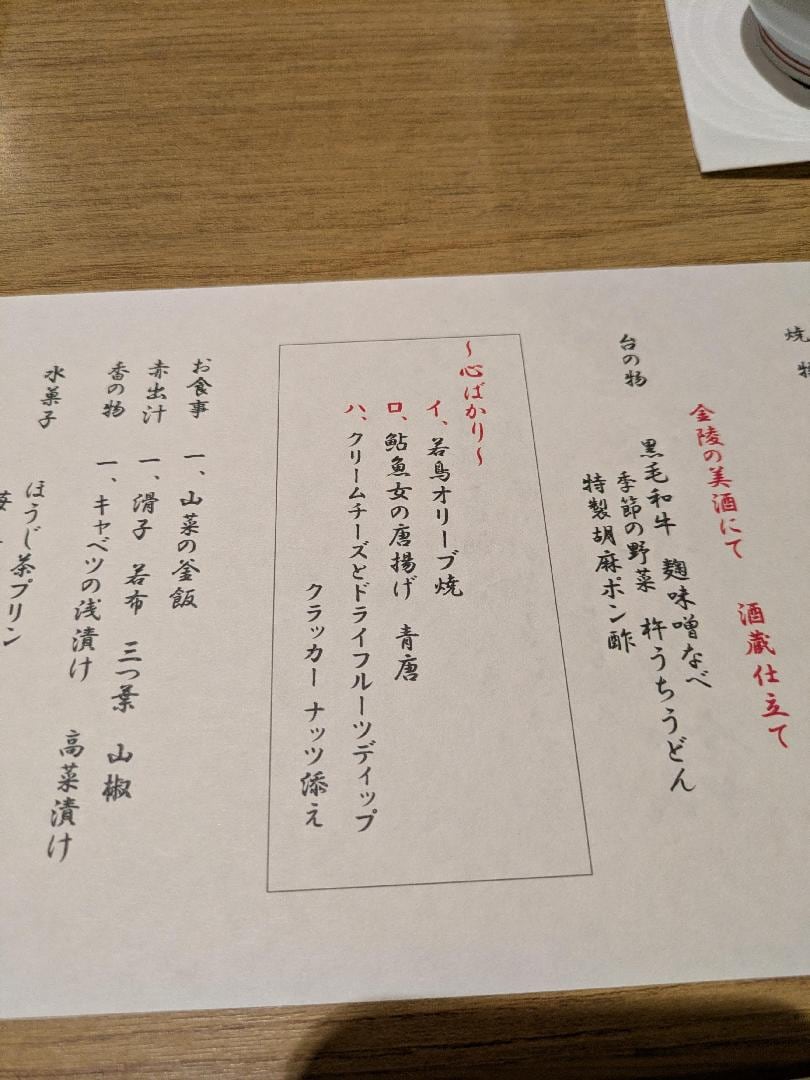 焼物
台の物
金陵の美酒にて 酒蔵仕立て
黒毛和牛 麹味噌なべ
季節の野菜 杵うちうどん
特製胡麻ポン酢
～心ばかり～
イ、若鳥オリーブ焼
ロ、鮎魚女の唐揚げ 青唐
ハ、クリームチーズとドライフルーツディップ
クラッカー ナッツ添え
お食事 一、山菜の釜飯
赤出汁 一、滑子 若布 三つ葉 山椒
香の物 一、キャベツの浅漬け 高菜漬け
水菓子
ほうじ茶プリン